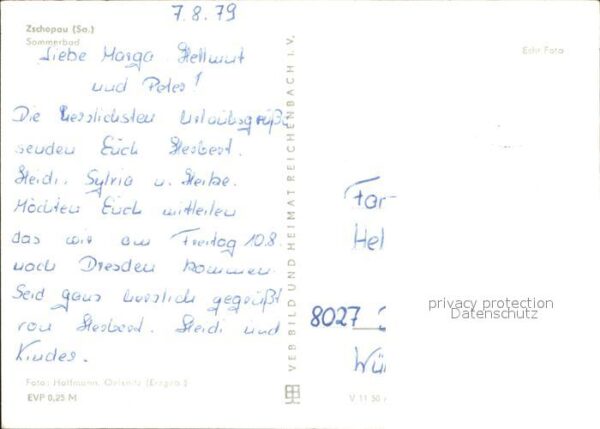 7.8.79
Zschopau (Sa.)
Sommerbad
Echt Foto
Liebe Marga Hellmut
und Peter!
Die herzlichsten Urlaubsgrüße
senden Euch Herbert.
Heidi, Sylvia u. Heike.
Möchten Euch mitteilen
das wir am Freitag 10.8.
nach Dresden kommen.
Seid ganz herzlich gegrüßt
von Herbert. Heidi und
Kinder.
Foto: Hoffmann, Oelsnitz (Erzgeb.)
EVP 0,25 M
VEB BILD UND HEIMAT REICHENBACH I. V.
Far-
Hel
8027
Wü
V 11 50
privacy protection
Datenschutz